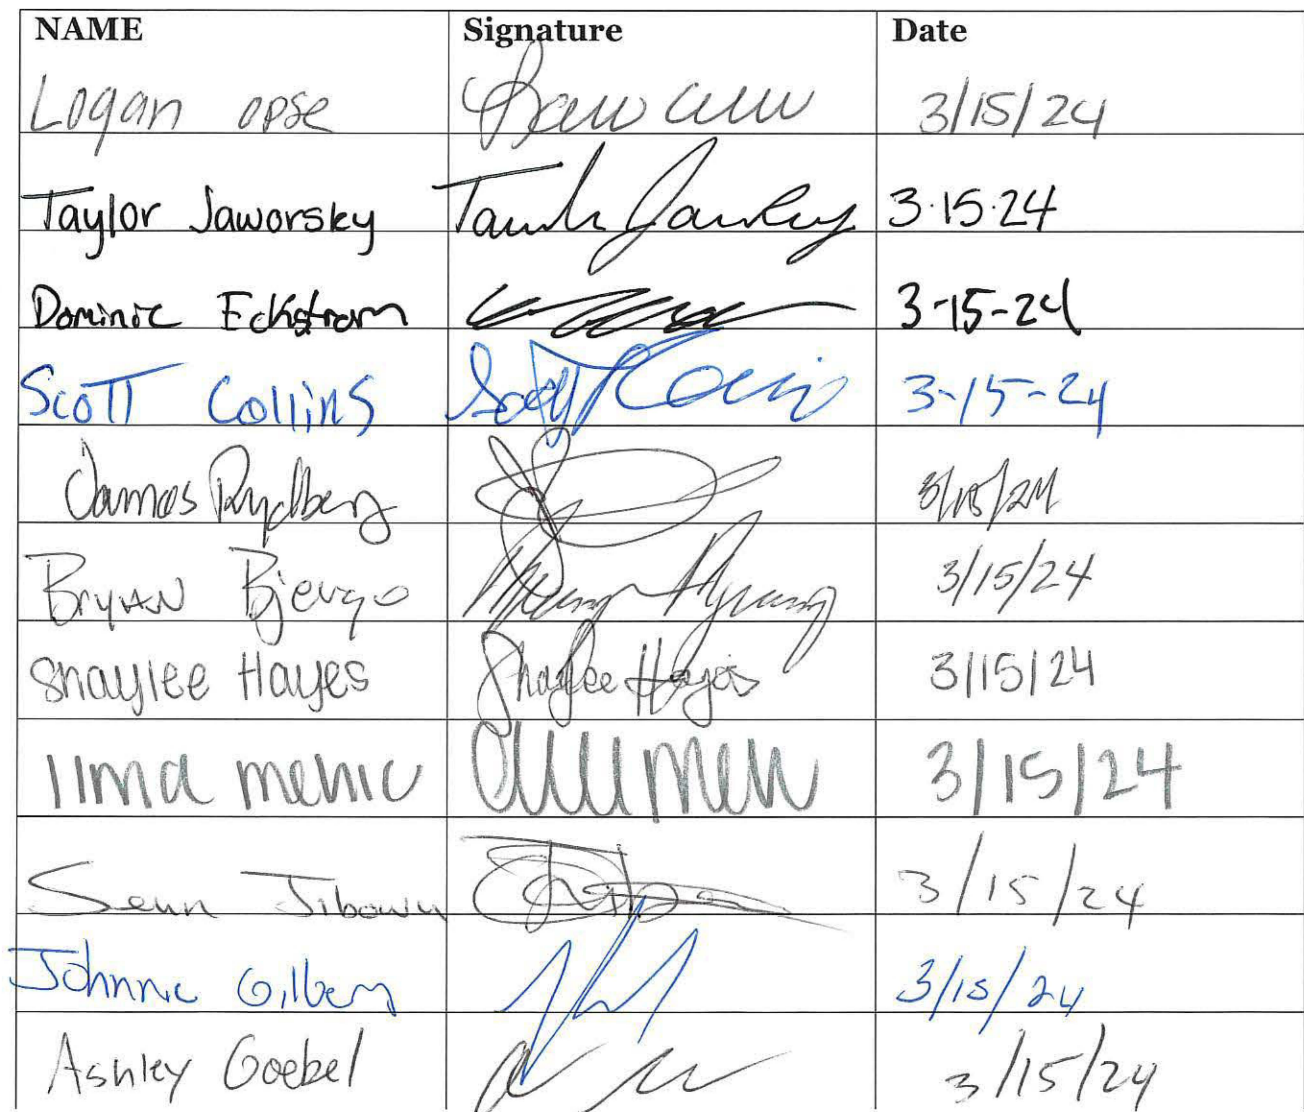 NAME Signature Date
Logan opse 3/15/24
Taylor Jaworsky 3.15.24
Dominic Eckstrom 3-15-24
Scott Collins Scott 3-15-24
James Rydberg 3/15/24
Bryan Bjervgo 3/15/24
Shaylee Hayes Shaylee Hayes 3/15/24
ilma mehic 3/15/24
Seun Jibowu 3/15/24
Johnnie Gilbery 3/15/24
Ashley Goebel 3/15/24